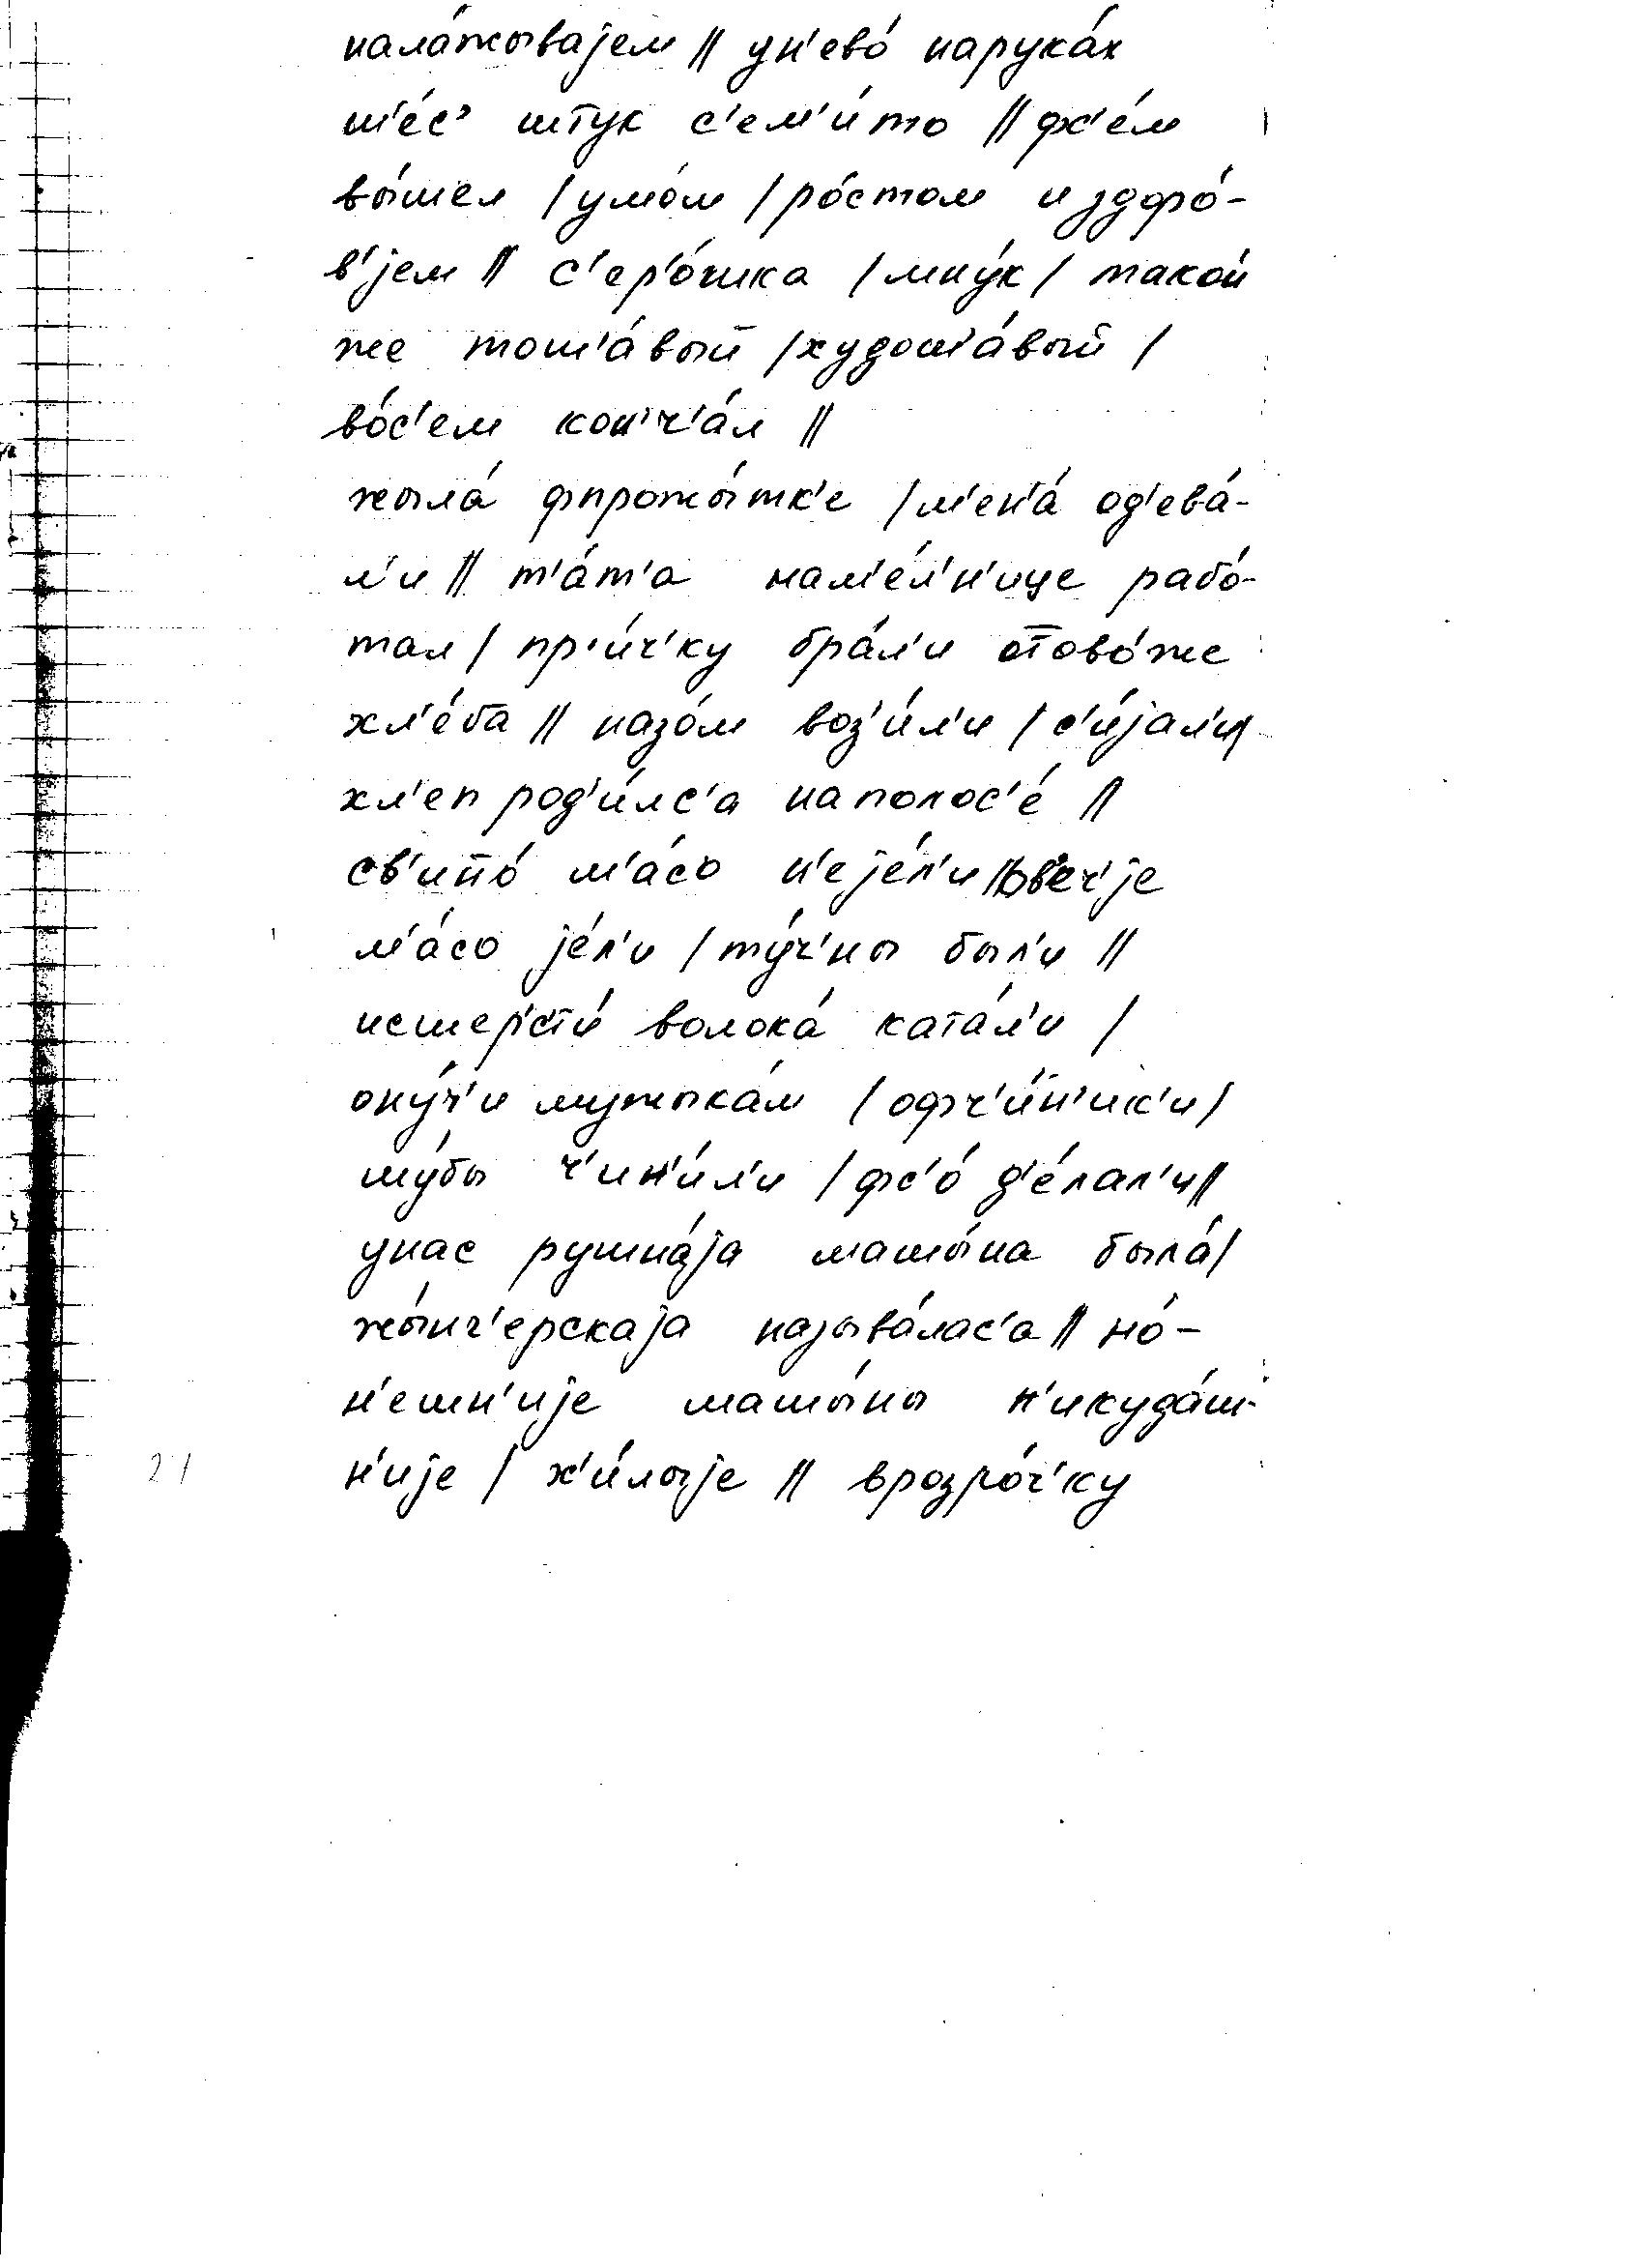 нала́жывајем // ун'ево́ нарука́х
ш'е́с' штук с'ем'и́то // фс'е́м
вы́шел / умо́м / ро́стом и здоро́-
в'јем // с'ер'о́шка / мну́к / тако́й
же тош'а́вый / худош'а́вый /
во́с'ем кон'ч'а́л //
жыла́ фпрожы́тк'е / м'ен'а́ од'ева́-
л'и // т'а́т'а нам'е́л'н'ице рабо́-
тал / пр'и́ч'ку бра́л'и отово́же
хл'е́ба // назо́м воз'и́л'и / с'и́јал'и /
хл'еп род'и́лс'а наполос'е́ //
св'ино́ м'а́со н'еје́л'и // ов'е́ч'је
м'а́со је́л'и / ту́ч'ны был'и //
исшер'сти́ волока́ ката́л'и /
ону́ч'и мужыка́м / офч'и́н'ик'и /
шу́бы ч'ин'и́л'и / фс'о́ д'е́лал'и //
унас рушна́ја машы́на была́ /
жы́нг'ерскаја называ́лас'а // но́-
н'ешн'ије машы́ны н'икуда́ш-
н'ије / х'и́лыје // врозро́ч'ку
21